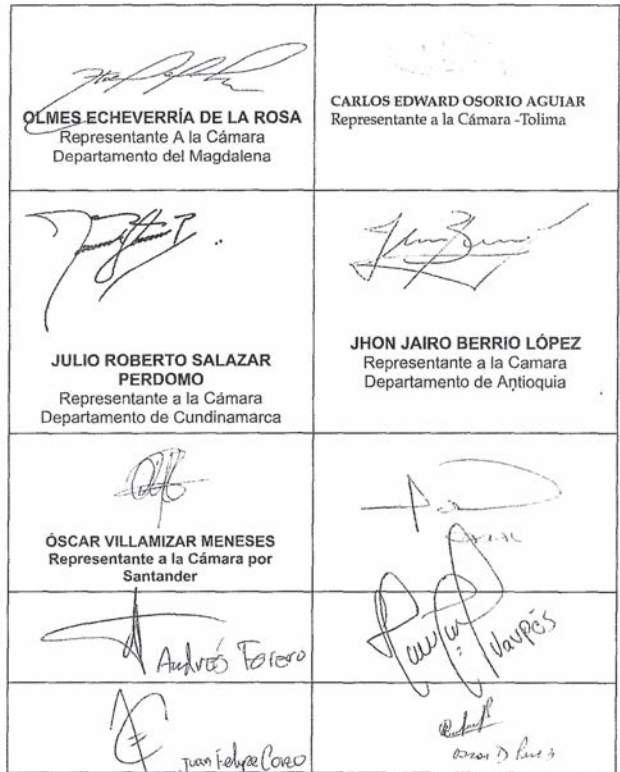 OLMES ECHEVERRÍA DE LA ROSA
Representante A la Cámara
Departamento del Magdalena
CARLOS EDWARD OSORIO AGUIAR
Representante a la Cámara -Tolima
JULIO ROBERTO SALAZAR
PERDOMO
Representante a la Cámara
Departamento de Cundinamarca
JHON JAIRO BERRIO LÓPEZ
Representante a la Camara
Departamento de Antioquia
ÓSCAR VILLAMIZAR MENESES
Representante a la Cámara por
Santander
Andrés Forero
Vaupés
Juan Felipe Corzo